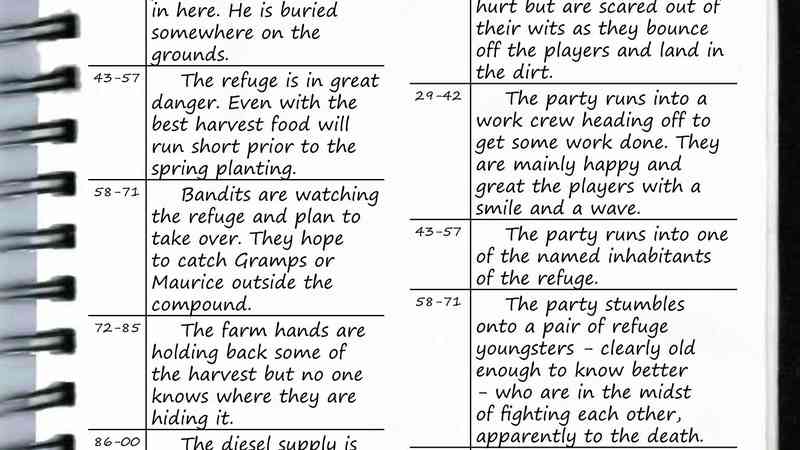 in here. He is buried
somewhere on the
grounds.
43-57 The refuge is in great
danger. Even with the
best harvest food will
run short prior to the
spring planting.
58-71 Bandits are watching
the refuge and plan to
take over. They hope
to catch Gramps or
Maurice outside the
compound.
72-85 The farm hands are
holding back some of
the harvest but no one
knows where they are
hiding it.
86-00 The diesel supply is
hurt but are scared out of
their wits as they bounce
off the players and land in
the dirt.
29-42 The party runs into a
work crew heading off to
get some work done. They
are mainly happy and
great the players with a
smile and a wave.
43-57 The party runs into one
of the named inhabitants
of the refuge.
58-71 The party stumbles
onto a pair of refuge
youngsters - clearly old
enough to know better
- who are in the midst
of fighting each other,
apparently to the death.